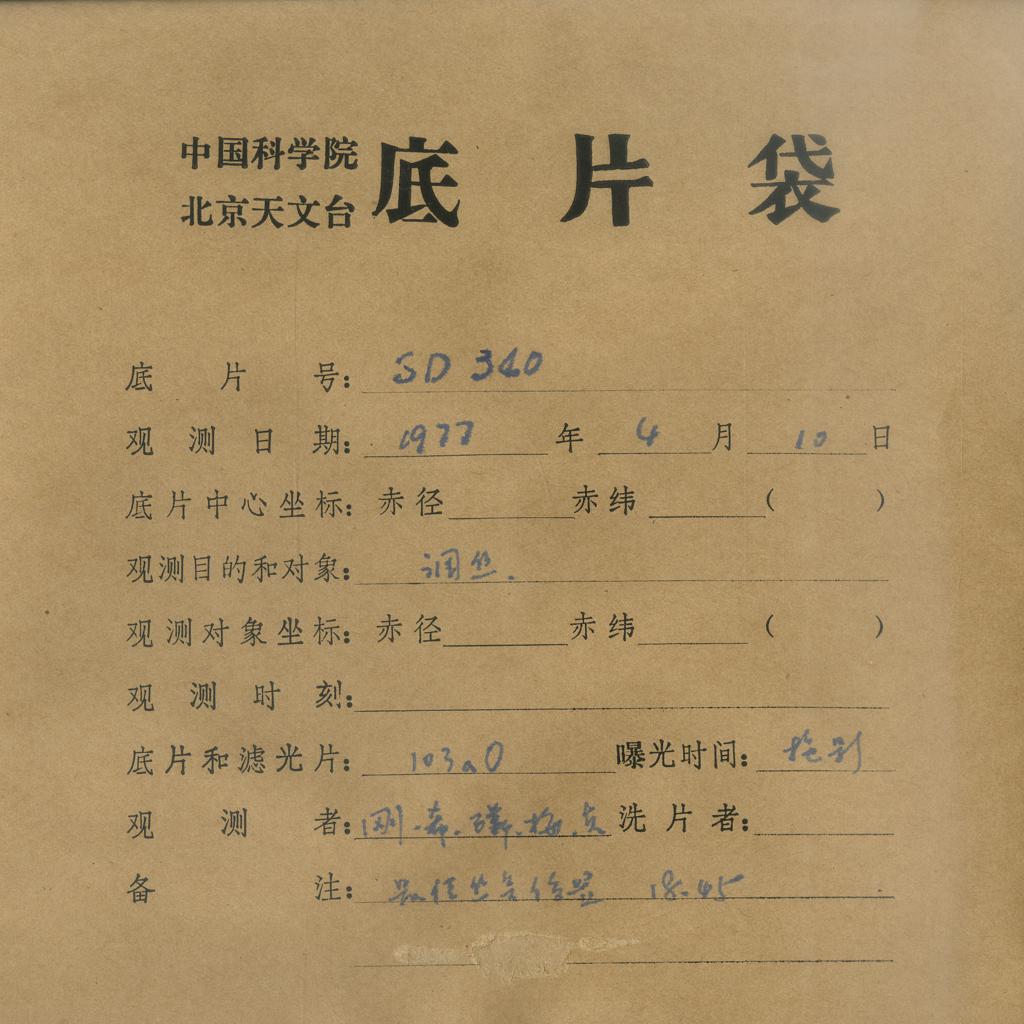 中国科学院
北京天文台
底片袋
底片号: SD 340
观测日期: 1977 年 4 月 10 日
底片中心坐标: 赤径 赤纬 ( )
观测目的和对象: 调丝.
观测对象坐标: 赤径 赤纬 ( )
观测时刻:
底片和滤光片: 103aO 曝光时间:
观测者: 刚. 洗片者:
备注: 18.45